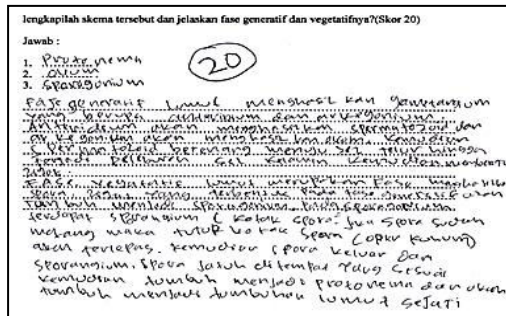 lengkapilah skema tersebut dan jelaskan fase generatif dan vegetatifnya?(Skor 20)
Jawab :
1. Protonema
2. Ovum
3. Sporogonium
20
Fase generatif lumut menghasilkan gametangium
yang berupa anteridium dan arkegonium.
Anteridium akan menghasilkan spermatozoid dan
arkegonium akan menghasilkan ovum. Kemudian
spermatozoid berenang menuju sel telur hingga
terjadi peleburan sel kelamin kemudian membentuk
zigot.
Fase vegetatif lumut merupakan fase
spora. Zigot yang terbentuk pada fase generatif akan
tumbuh menjadi sporogonium. Pada sporogonium
terdapat sporangium (kotak spora. Jika spora sudah
matang maka tutup kotak spora (operkulum)
akan terlepas. kemudian spora keluar dari
sporangium. Spora jatuh ditempat yang sesuai
kemudian tumbuh menjadi protonema dan akan
tumbuh menjadi tumbuhan lumut sejati